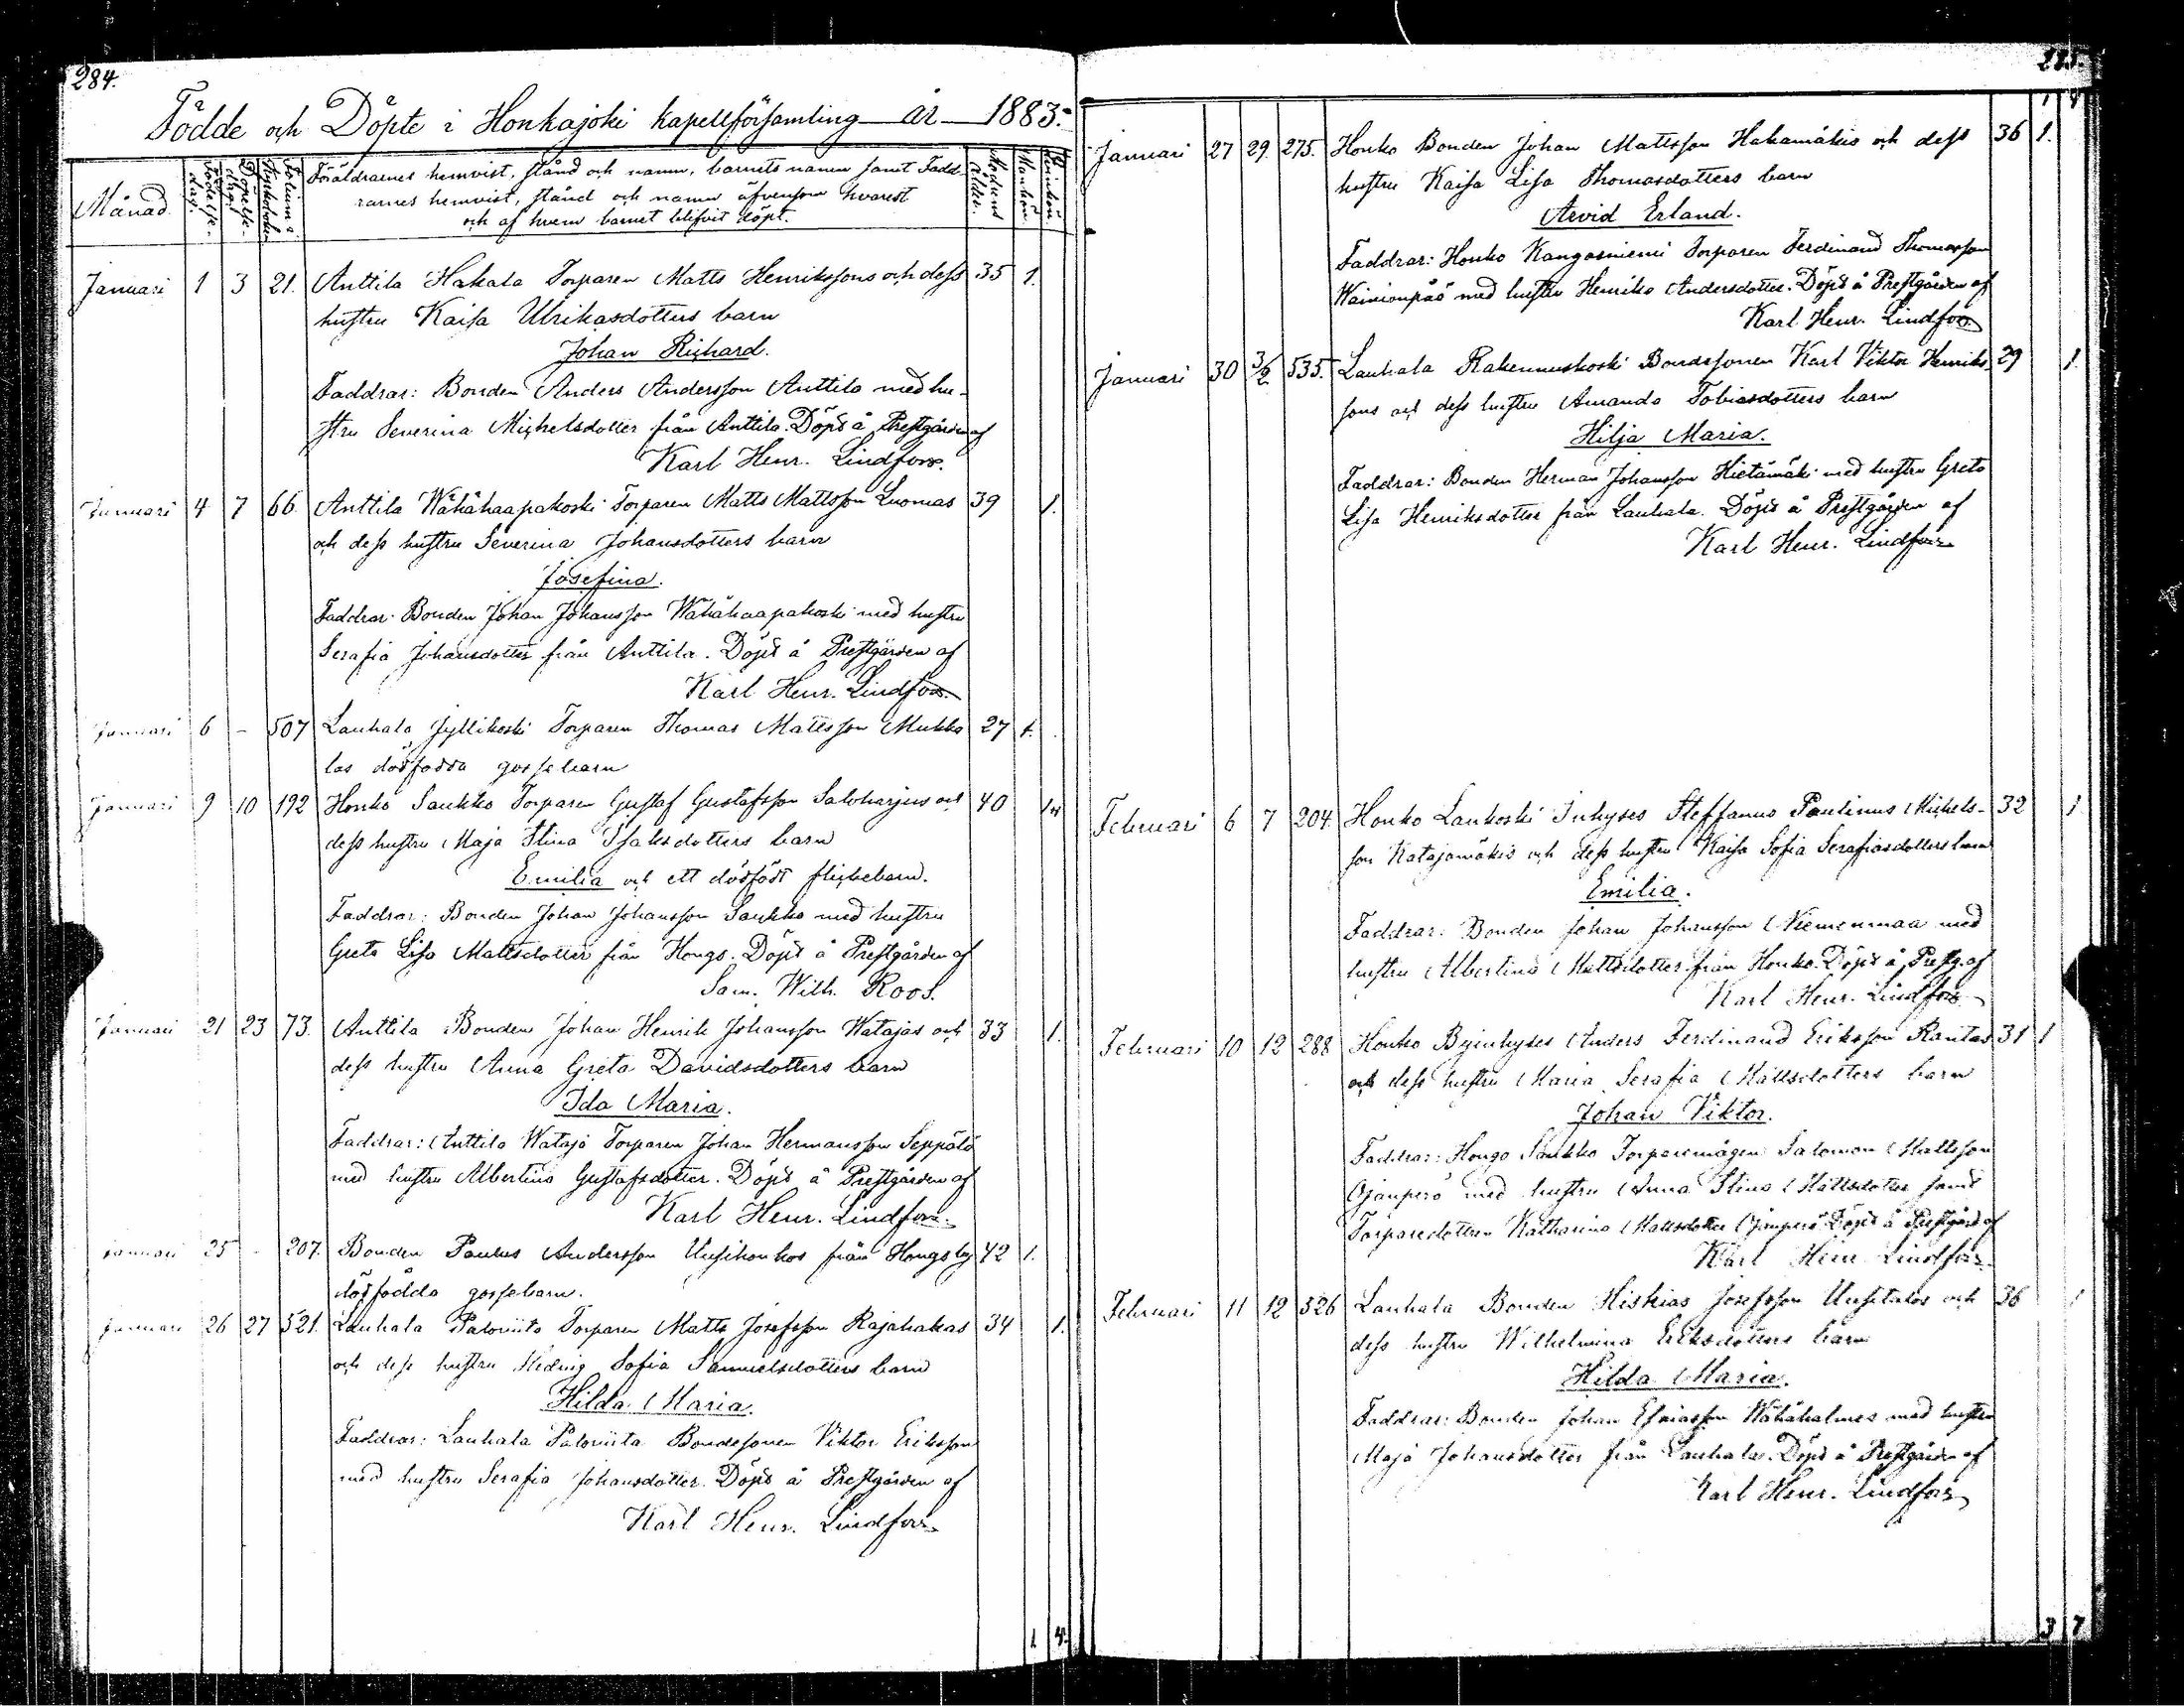 284.
Födde och Döpte i Honkajoki kapellförsamling år 1883.
Månad.
Födelse-dag.
Döpelse-dag.
Folium i
Föräldrarnes hemvist, stånd och namn, barnets namn samt Fadd-
rarnes hemvist, stånd och namn äfvensom hvarest
och af hvem barnet blifvit döpt.
Moderns ålder.
Mankön.
Qvinkön.
Januari 1 3 21. Anttila Hakala Torparen Matts Henrikssons och dess 35 1.
hustru Kaisa Ulrikasdotters barn
Johan Richard.
Faddrar: Bonden Anders Andersson Anttila med hu-
stru Severina Michelsdotter från Anttila. Döpt å Prestgården af
Karl Henr. Lindfors.
Januari 4 7 66. Anttila Wähähaapakoski Torparen Matts Mattsson Luomas 39 1.
och dess hustru Severina Johansdotters barn
Josefina.
Faddrar: Bonden Johan Johansson Wähähaapakoski med hustru
Serafia Johansdotter från Anttila. Döpt å Prestgården af
Karl Henr. Lindfors.
Januari 6 - 507 Lauhala Jyllikoski Torparen Thomas Mattsson Mukko 27 1.
las dödfödda gossebarn
Januari 9 10 192 Honko Saukko Torparen Gustaf Gustafsson Saloharjus och 40
dess hustru Maja Stina Isaksdotters barn
Emilia och ett dödfödt flickebarn.
Faddrar: Bonden Johan Johansson Saukko med hustru
Greta Lisa Mattsdotter från Hongo. Döpt å Prestgården af
Sam. Wilh. Roos.
Januari 21 23 73. Anttila Bonden Johan Henrik Johansson Watajas och 33 1.
dess hustru Anna Greta Davidsdotters barn
Ida Maria.
Faddrar: Anttila Wataja Torparen Johan Hermansson Seppälä
med hustru Albertina Gustafsdotter. Döpt å Prestgården af
Karl Henr. Lindfors.
Januari 25 - 207. Bonden Paulus Andersson Uusihonkos från Hongo by 42 1.
dödfödda gossebarn.
Januari 26 27 521. Lauhala Paloviita Torparen Matts Josefsson Rajahakas 34 1.
och dess hustru Hedvig Sofia Samuelsdotters barn
Hilda Maria.
Faddrar: Lauhala Paloviita Bondesonen Viktor Eriksson
med hustru Serafia Johansdotter. Döpt å Prestgården af
Karl Henr. Lindfors.
1 4.
285.
Januari 27 29. 275. Honko Bonden Johan Mattsson Hakamäkis och dess 36 1.
hustru Kaisa Lisa Thomasdotters barn
Arvid Erland.
Faddrar: Honko Kangasniemi Torparen Ferdinand Thomasson
Wainionpää med hustru Henrika Andersdotter. Döpt å Prestgården af
Karl Henr. Lindfors
Januari 30 3/2 535. Lauhala Rakennuskoski Bondesonen Karl Viktor Henriks 29 1.
sons och dess hustru Amanda Tobiasdotters barn
Hilja Maria.
Faddrar: Bonden Herman Johansson Hietamäki med hustru Greta
Lisa Henriksdotter från Lauhala. Döpt å Prestgården af
Karl Henr. Lindfors
Februari 6 7 204. Honko Laukoski Inhyses Steffanus Paulinus Michels- 32 1
son Katajamäkis och dess hustru Kaisa Sofia Serafiasdotters barn
Emilia.
Faddrar: Bonden Johan Johansson Niemenmaa med
hustru Albertina Mattsdotter från Honko. Döpt å Prestg. af
Karl Henr. Lindfors
Februari 10 12 288 Honko Byinhyses Anders Ferdinand Eriksson Rantas 31 1
och dess hustru Maria Serafia Mattsdotters barn
Johan Viktor.
Faddrar: Hongo Saukko Torparemågen Salomon Mattsson
Ojanperä med hustru Anna Stina Mattsdotter samt
Torparedottren Katharina Mattsdotter Ojanperä. Döpt å Prestgård af
Karl Henr. Lindfors.
Februari 11 12 526 Lauhala Bonden Hiskias Josefsson Uusitalos och 36 1
dess hustru Wilhelmina Eriksdotters barn
Hilda Maria.
Faddrar: Bonden Johan Efraisson Wähäholmes med hustru
Maja Johansdotter från Lauhala. Döpt å Prestgården af
Karl Henr. Lindfors
3 7